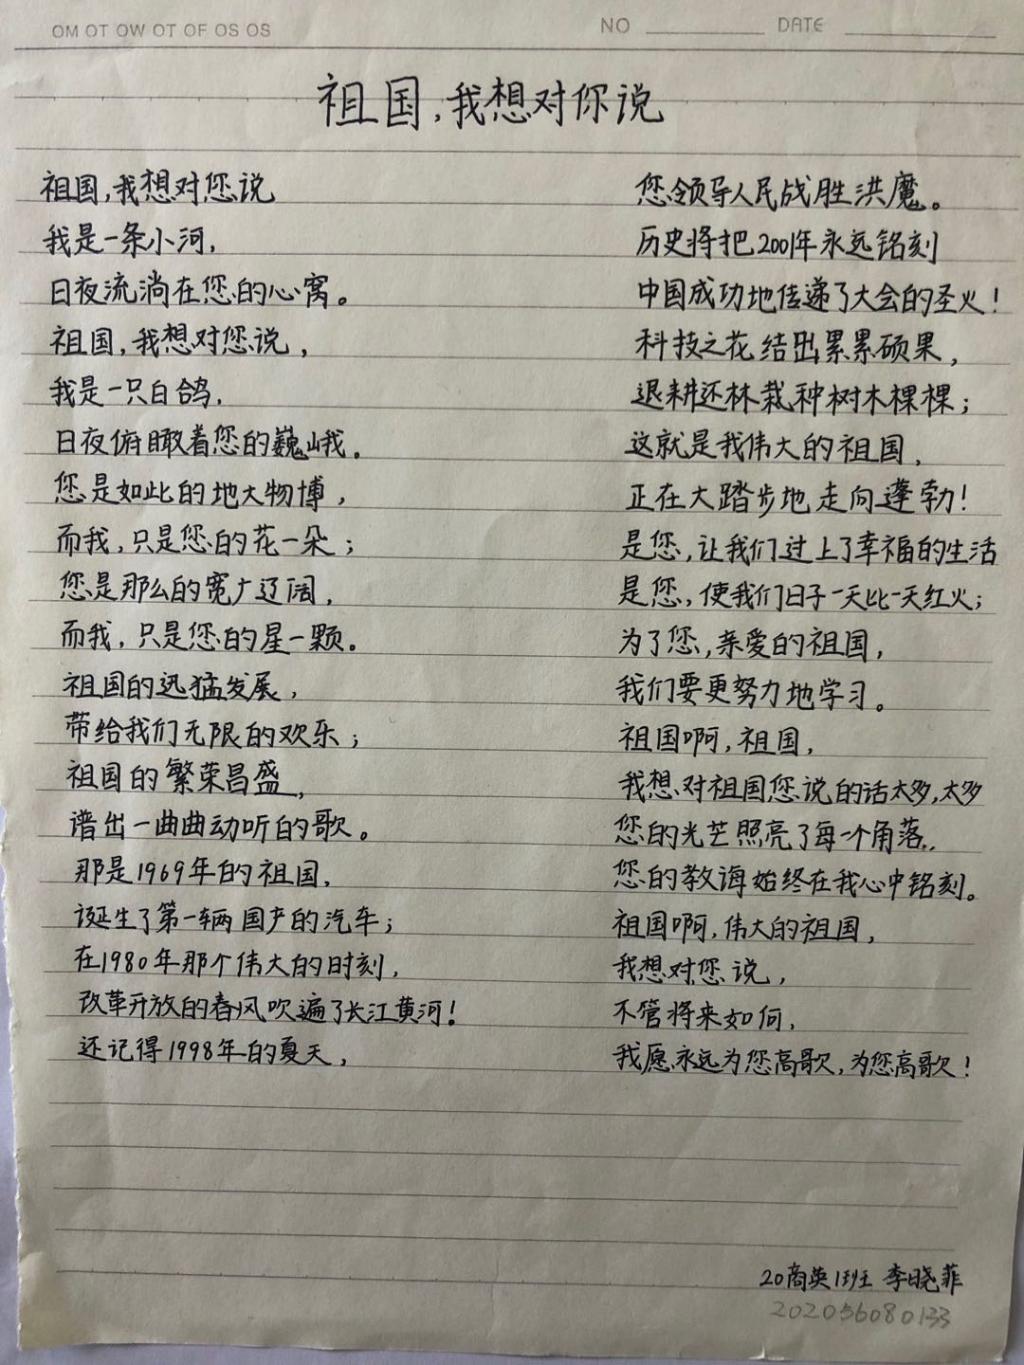 OM OT OW OT OF OS OS
NO DATE
祖国,我想对你说
祖国,我想对您说
我是一条小河,
日夜流淌在您的心窝。
祖国,我想对您说,
我是一只白鸽,
日夜俯瞰着您的巍峨。
您是如此的地大物博,
而我,只是您的花一朵;
您是那么的宽广辽阔,
而我,只是您的星一颗。
祖国的迅猛发展,
带给我们无限的欢乐;
祖国的繁荣昌盛,
谱出一曲曲动听的歌。
那是1969年的祖国,
诞生了第一辆国产的汽车;
在1980年那个伟大的时刻,
改革开放的春风吹遍了长江黄河!
还记得1998年的夏天,
您领导人民战胜洪魔。
历史将把2001年永远铭刻
中国成功地传递了大会的圣火!
科技之花结出累累硕果,
退耕还林栽种树木棵棵;
这就是我伟大的祖国,
正在大踏步地走向蓬勃!
是您,让我们过上了幸福的生活
是您,使我们日子一天比一天红火;
为了您,亲爱的祖国,
我们要更努力地学习。
祖国啊,祖国,
我想对祖国您说的话太多,太多
您的光芒照亮了每一个角落.
您的教诲始终在我心中铭刻。
祖国啊,伟大的祖国,
我想对您说,
不管将来如何,
我愿永远为您高歌,为您高歌!
20商英1班 李晓菲
202056080133